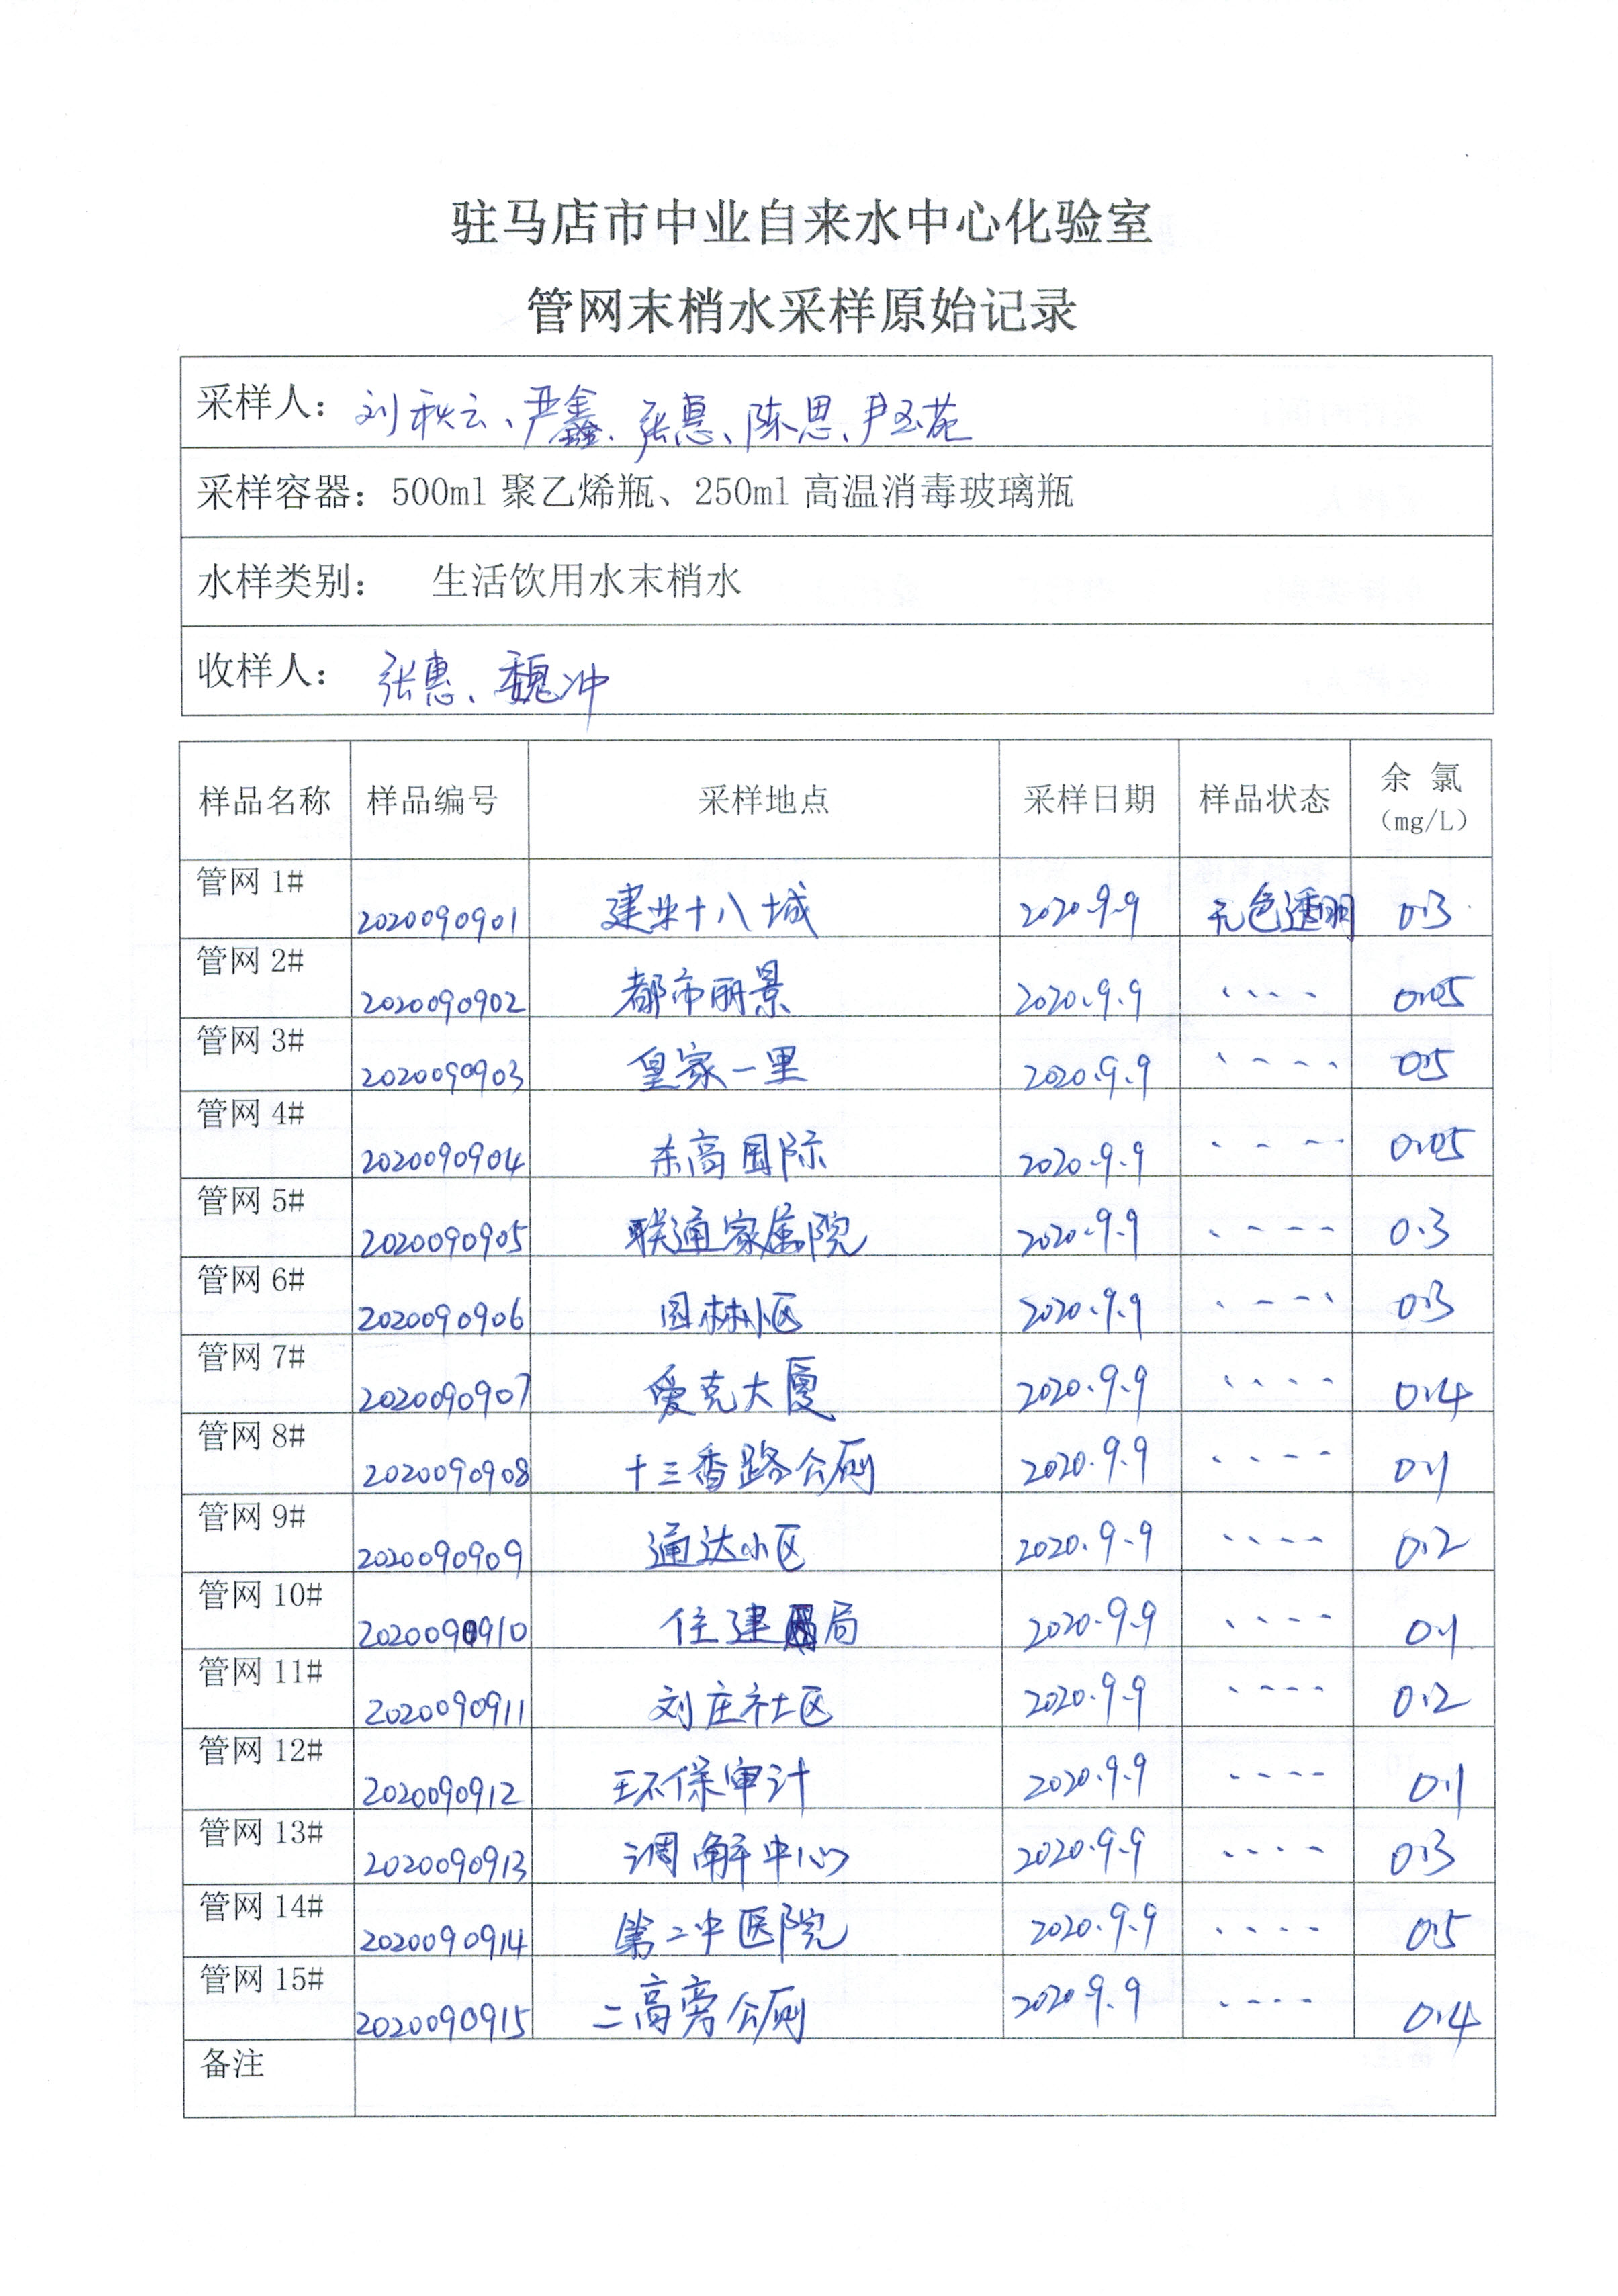 驻马店市中业自来水中心化验室
管网末梢水采样原始记录
采样人：刘秋云、严鑫、张惠、陈思、尹玉苑
采样容器：500ml 聚乙烯瓶、250ml 高温消毒玻璃瓶
水样类别： 生活饮用水末梢水
收样人： 张惠、魏冲
样品名称 样品编号 采样地点 采样日期 样品状态 余 氯（mg/L）
管网 1# 2020090901 建业十八城 2020.9.9 无色透明 0.3
管网 2# 2020090902 都市丽景 2020.9.9 、、、、 0.05
管网 3# 2020090903 皇家一里 2020.9.9 、、、、 0.5
管网 4# 2020090904 东高国际 2020.9.9 、、、、 0.05
管网 5# 2020090905 联通家属院 2020.9.9 、、、、 0.3
管网 6# 2020090906 园林小区 2020.9.9 、、、、 0.3
管网 7# 2020090907 爱克大厦 2020.9.9 、、、、 0.4
管网 8# 2020090908 十三香路公厕 2020.9.9 、、、、 0.1
管网 9# 2020090909 通达小区 2020.9.9 、、、、 0.2
管网 10# 2020090910 住建局 2020.9.9 、、、、 0.1
管网 11# 2020090911 刘庄社区 2020.9.9 、、、、 0.2
管网 12# 2020090912 环保审计 2020.9.9 、、、、 0.1
管网 13# 2020090913 调解中心 2020.9.9 、、、、 0.3
管网 14# 2020090914 第二中医院 2020.9.9 、、、、 0.5
管网 15# 2020090915 二高旁公厕 2020.9.9 、、、、 0.4
备注